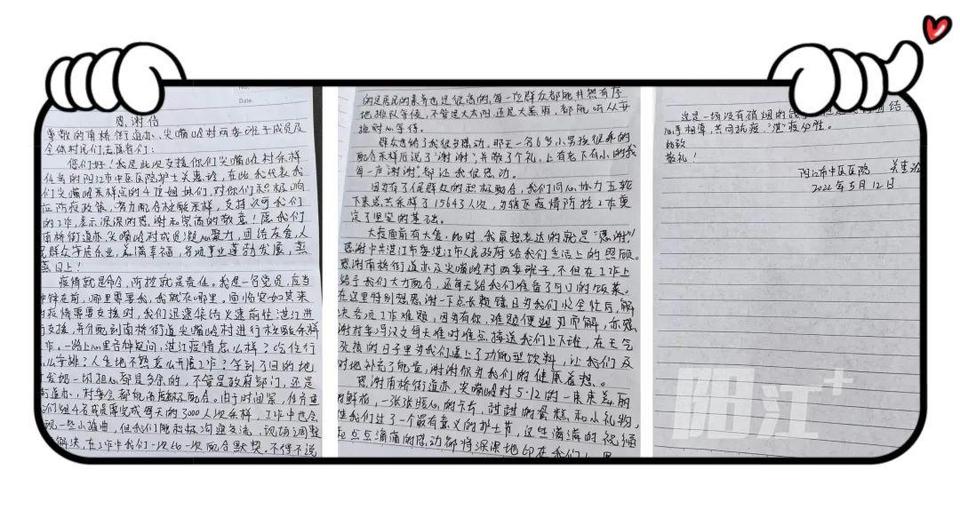 Date.
感谢信
尊敬的南桥街道办、尖嘴岭村两委班子成员及
全体村民们、志愿者们:
您们好!我是此次支援你们尖嘴岭村采样
任务的阳江市中医医院护士关惠玲,在此我代表我
们尖嘴岭采样点的4位姐妹们,对你们积极响
应防疫政策、努力配合核酸采样,支持认可我们
的工作,表示深深的感谢和崇高的敬意!愿我们
南桥街道办、尖嘴岭村或迎凝心聚力,团结友爱,人
民群众安居乐业,美满幸福,各项事业蓬勃发展,蒸
蒸日上!
疫情就是命令,防控就是责任。我是一名党员,应当
冲锋在前,哪里需要我,我就在哪里,面临突如其来
的疫情需要支援时,我们迅速集结火速前往湛江进
行支援,并分配到南桥街道尖嘴岭村进行核酸采样
工作。一路上心里告诉疑问,湛江疫情怎么样?吃住行
怎么安排?人生地不熟怎么开展工作?等到了目的地
发现一切担心都是多余的,不管是政府部门,还是
街道办,村委会都
由于时间紧,任务重
们组4名成员要完成每天约3000人次采样,工作中也会
现一些小插曲,但我们能积极沟通交流,现场调整
解决,在工作中我们一次比一次配合默契。不得不说
的是居民的素养也是很高的,每一位群众都能井然有序
地排队等候,不管是大太阳还是大暴雨,都能听从安
排耐心等待。
群众也给了我很多感动,那天一名6岁小男孩很乖的
配合采样后说了"谢谢",并敬了个礼,上有老下有小的我
每一声"谢谢"都让我很感动。
因为有了您群众的积极配合,我们同心协力五轮
下来总共采样了15643人次,为辖区疫情防控工作奠
定了坚实的基础。
大疫面前有大爱,此时,我最想表达的就是"感谢!"
感谢中共湛江市委湛江市人民政府给我们生活上的照顾。
感谢南桥街道办及尖嘴岭村两委班子,不但在工作上
给予我们大力配合,还每天给我们准备了可口的饭菜。
在这里特别想感谢一下点长
日为我们收全忙后,解
决各项工作难题,因为有你,难题便迎刃而解,亦感
谢村委冯汉文每天准时准点接送我们上下班,在天气
炎热的日子里为我们送上了功能型饮料,让我们及
时地补充了能量,谢谢你为我们的健康着想。
感谢南桥街道办,尖嘴岭村5·12的一束束美丽
的鲜花,一张张暖心的卡片,甜甜的蛋糕和小礼物,
使我们过了一个最有意义的护士节,这些满满的祝福
点点滴滴的感动都将深深地印在我们心里
这是一场没有硝烟的战
团结
心,手相牵,共同抗疫,"湛"疫必胜。
此致
敬礼!
阳江市中医医院 关惠玲
2022年5月12日
阳江+